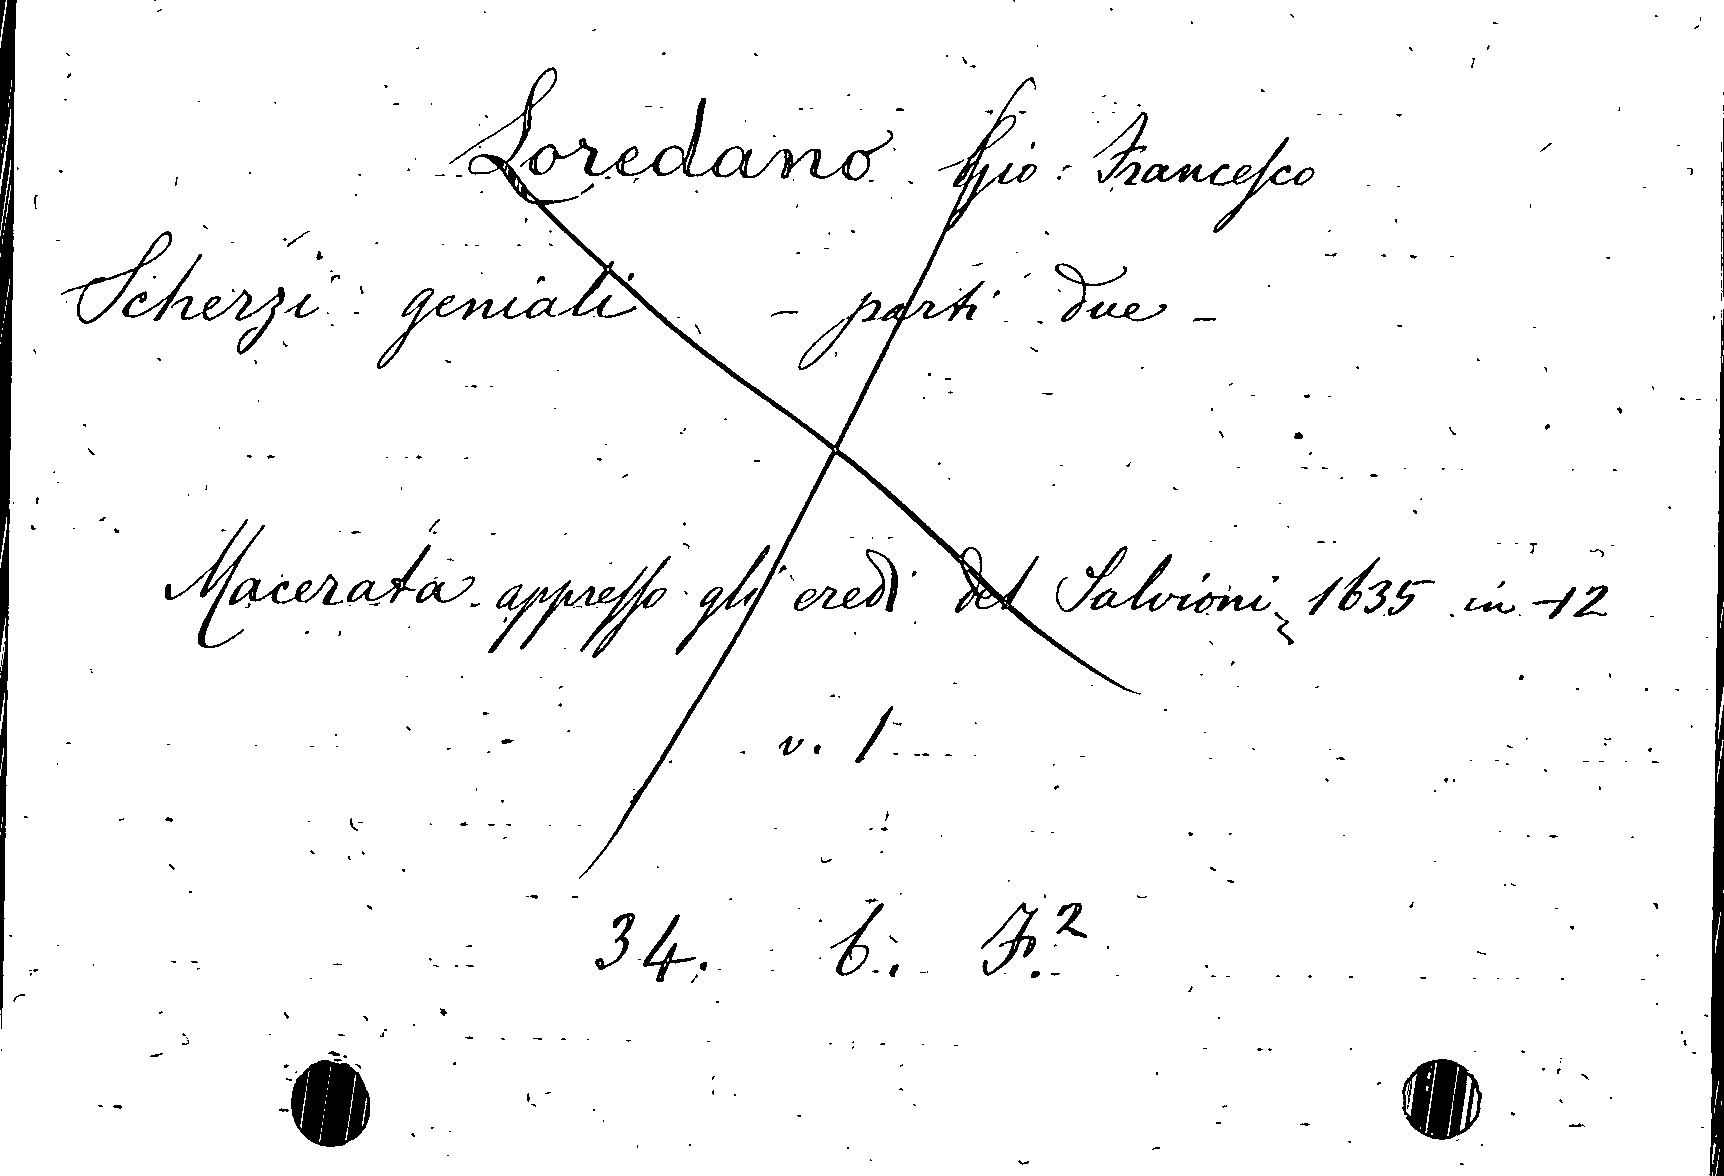 Loredano Gio: Francesco
Scherzi geniali - parti due -
Macerata appresso gli eredi del Salvioni, 1635 in-12
v. 1
34. b. F.²